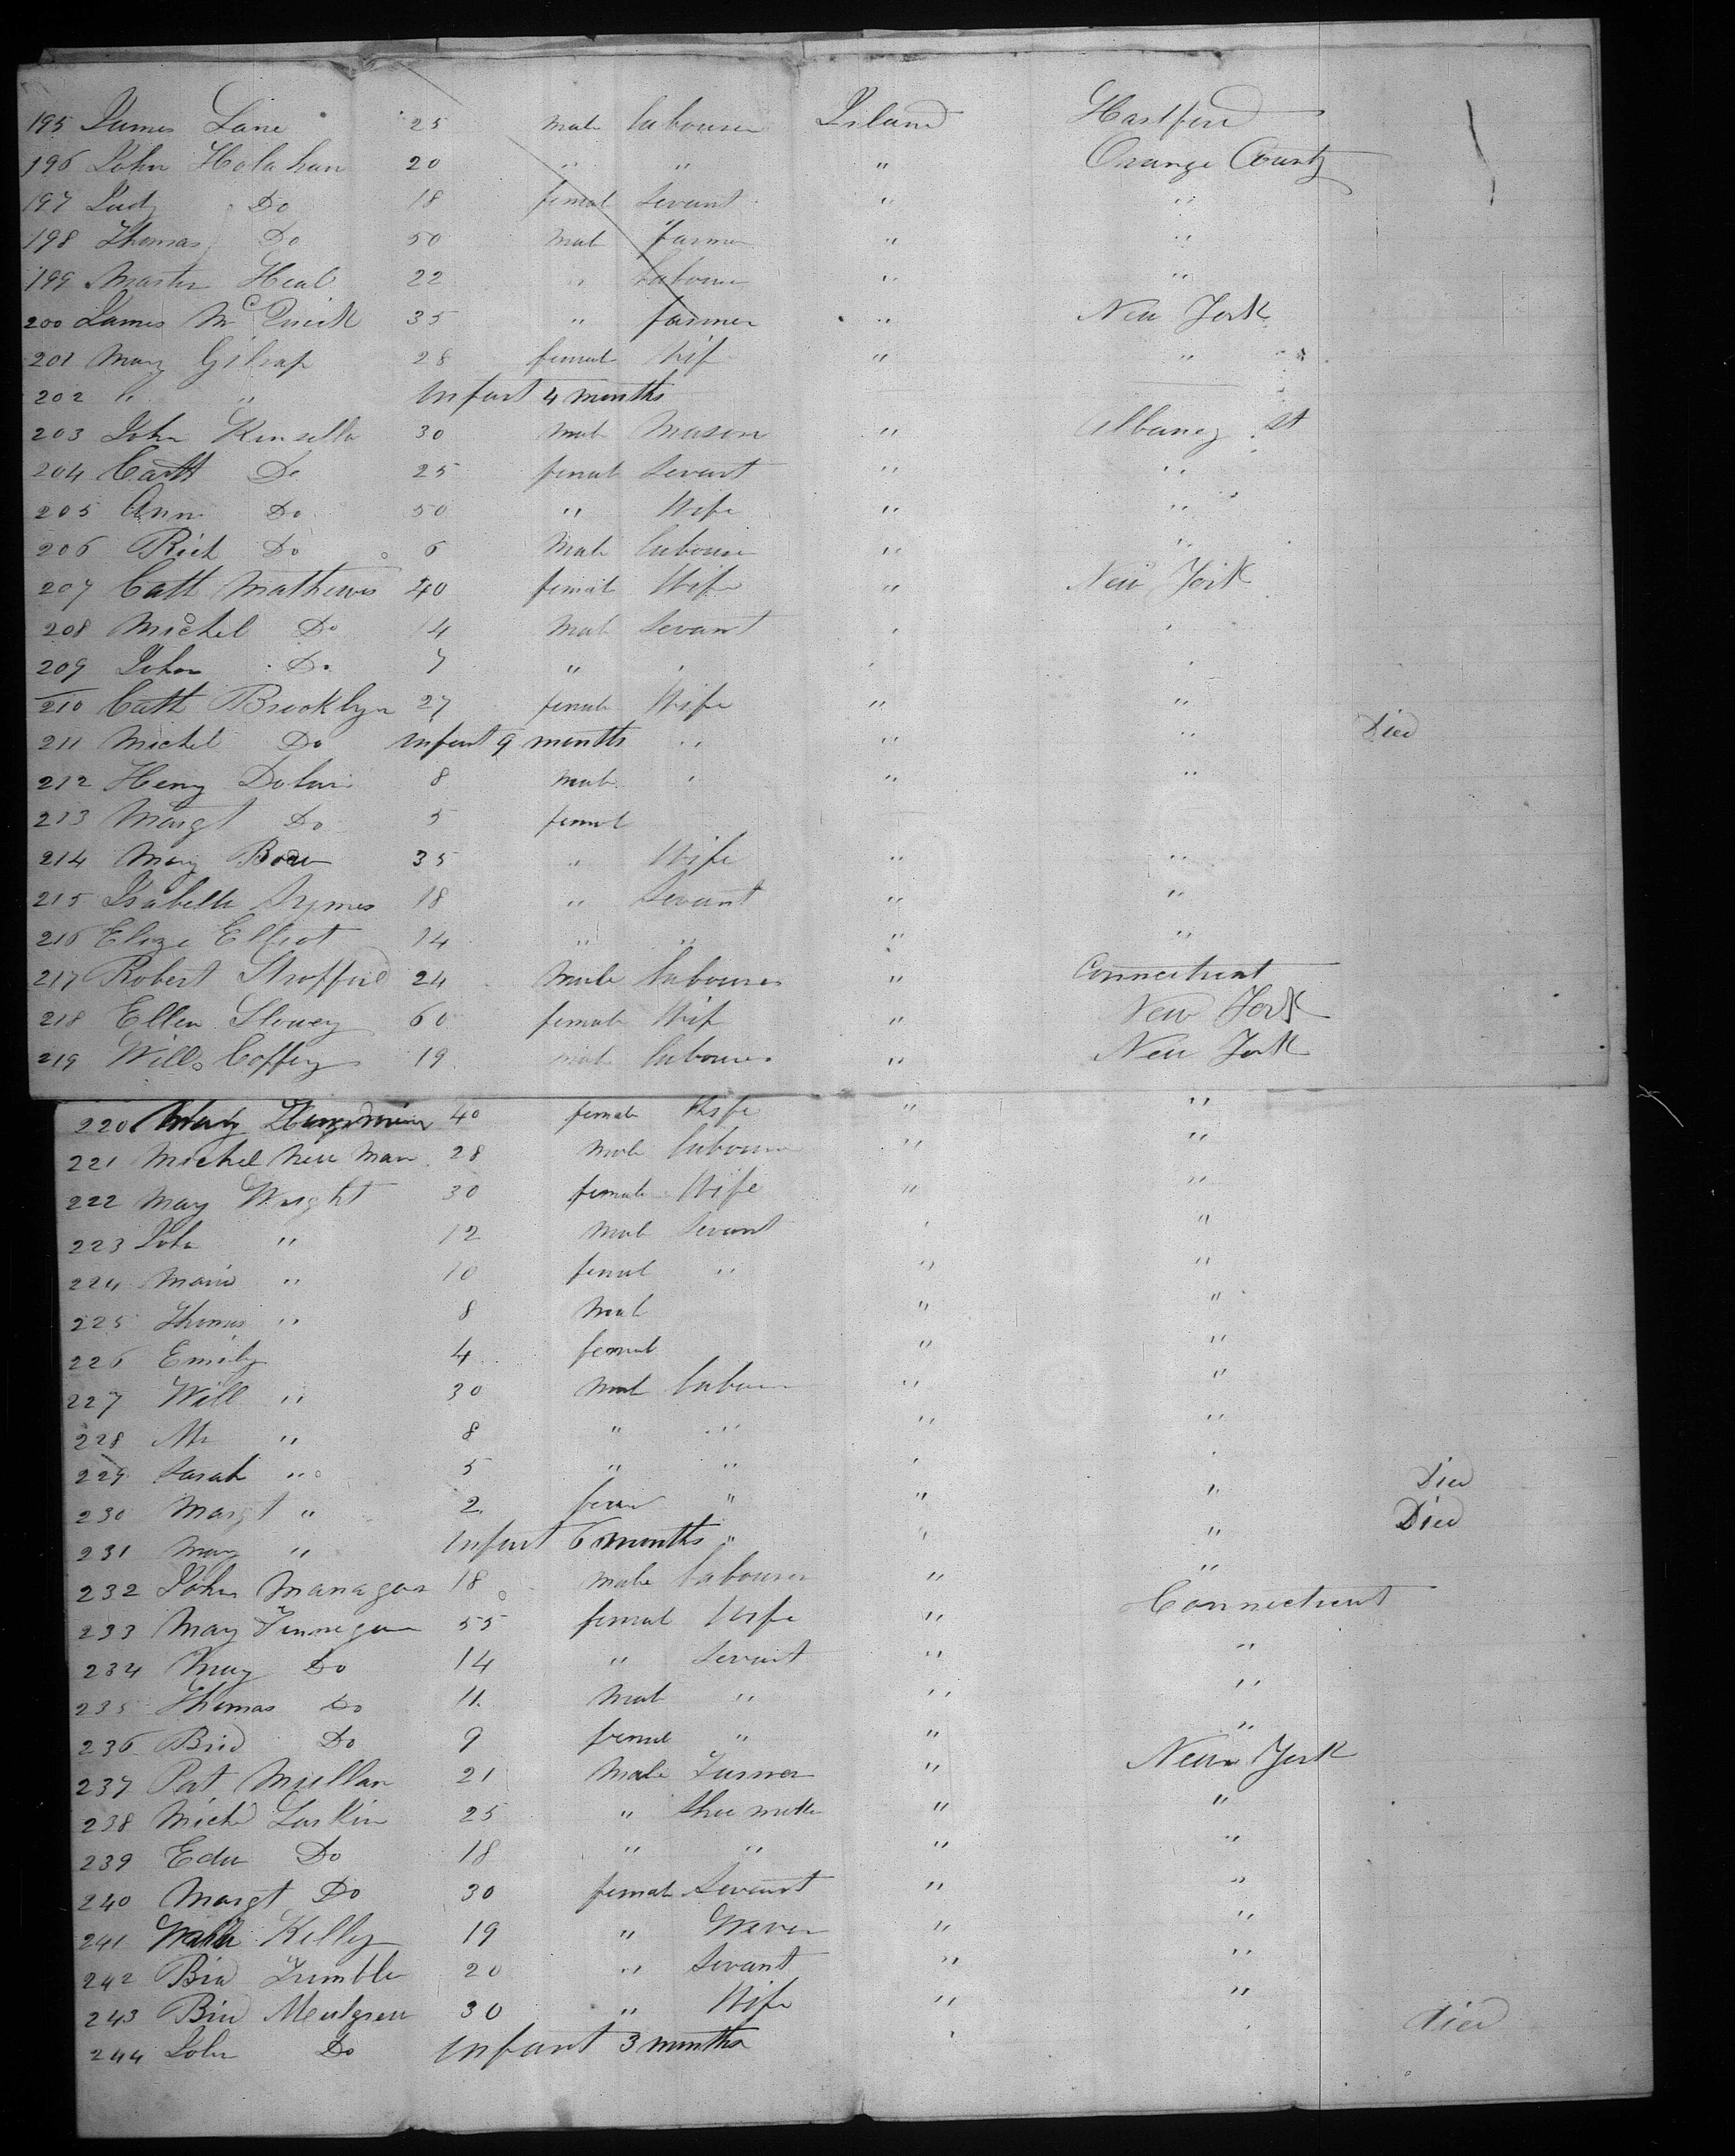 195 James Lane 25 male labourer Irland Hartford
196 John Holahan 20 " " " Orange County
197 Judy Do 18 femal Servant " "
198 Thomas Do 50 mal farmer " "
199 Martin Heal 22 " labourer " "
200 James Mc Quick 35 " farmer " New York
201 Mary Gilrap 28 femal Wif " "
202 " " Infant 4 months
203 John Kinsella 30 mal Mason " Albaney st
204 Cath Do 25 femal Servant " "
205 Ann Do 50 " Wife " "
206 Rich Do 6 Male labourer " "
207 Cath Mathews 40 femal Wife " New York
208 Michel Do 14 Mal Servant " "
209 John Do 7 " " " "
210 Cath Brooklyn 27 femal Wife " "
211 Michel Do Infant 9 months " " " Died
212 Henry Dolan 8 male " " "
213 Margt Do 5 femal
214 Mary 35 " Wife " "
215 Isabella Symes 18 " Servant " "
216 Eliza Elliot 14 " " " "
217 Robert Strofford 24 Male labourer " Connecticut
218 Ellen Slowey 60 femal Wif " New York
219 Willm Coffey 19 mal labourer " New York
220 Mary 40 female Wife " "
221 Michel New Man 28 Male labourer " "
222 Mary Wright 30 female Wife " "
223 John " 12 Male Servant " "
224 Maria " 10 femal " " "
225 Thomas " 8 Mal " "
226 Emily 4 femal " "
227 Will " 30 Mal labour " "
228 " 8 " " " "
229 Sarah " 5 " " " " Died
230 Margt " 2 fem " " " Died
231 Mary " Infant 6 months " " "
232 John Managan 18 male labourer " "
233 Mary Finnegan 55 femal Wife " Connecticut
234 Mary Do 14 " Servant " "
235 Thomas Do 11 Mal " " "
236 Brid Do 9 femal " " "
237 Pat Mullan 21 Male Farmer " New York
238 Michl Larkin 25 " Shoe maker " "
239 Edw Do 18 " " " "
240 Margt Do 30 femal Servant " "
241 Kelly 19 " Wever " "
242 Brid Trimble 20 " Servant " "
243 Brid Meulgrew 30 " Wife " "
244 John Do Infant 3 months " " Died